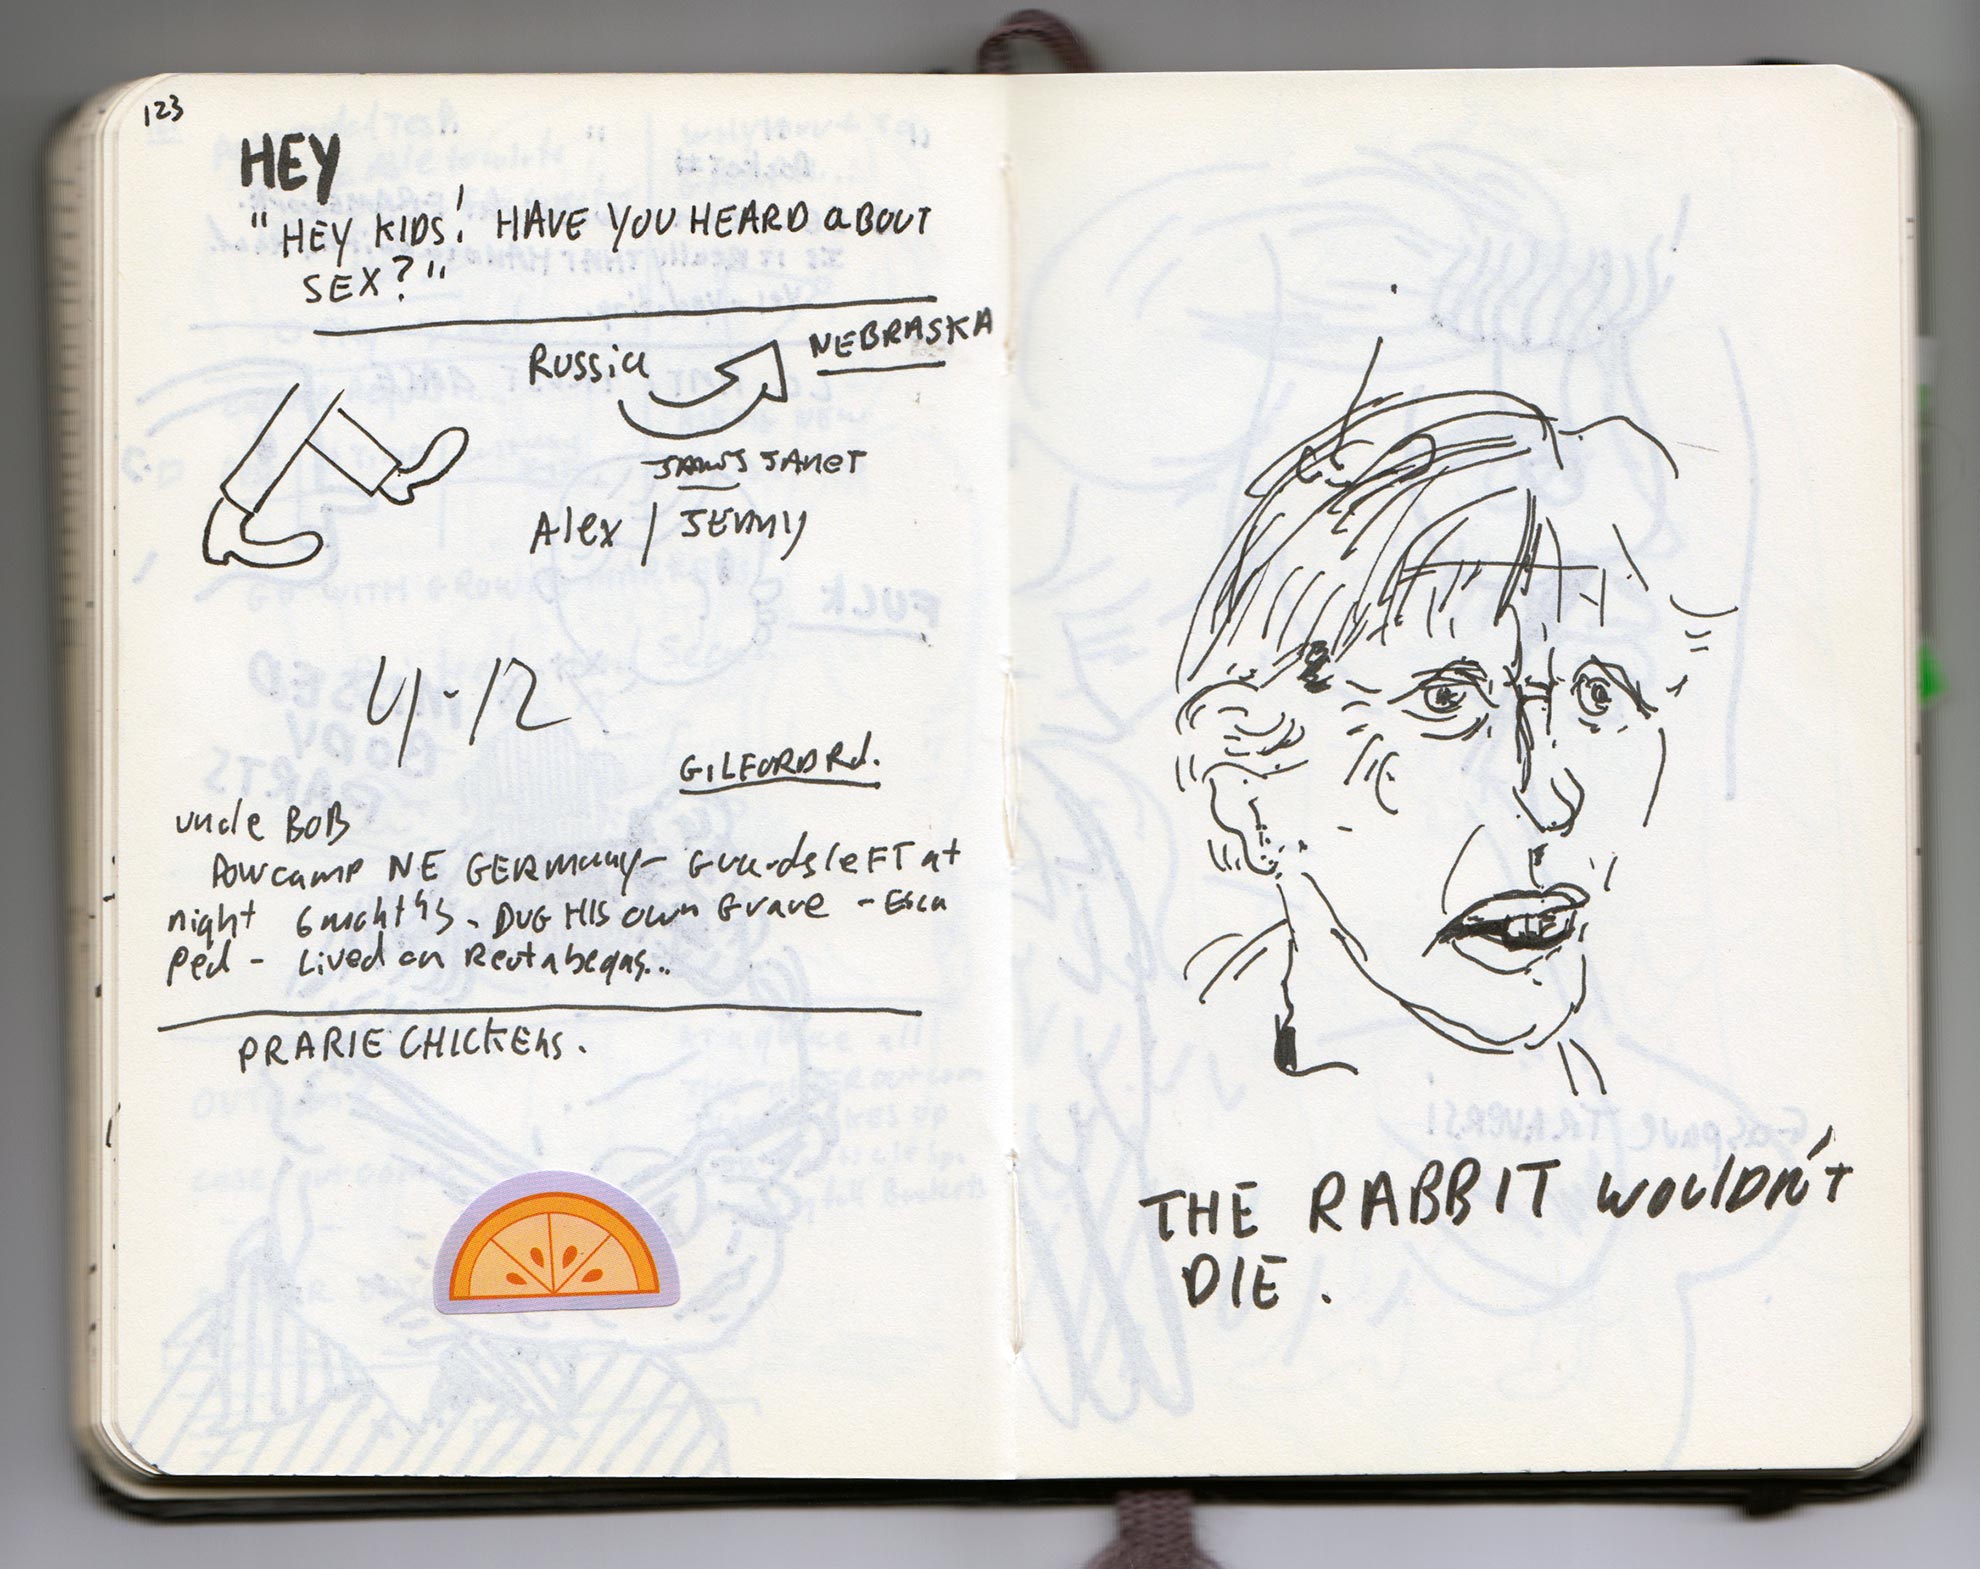 123
HEY
"HEY KIDS! HAVE YOU HEARD aBOUT
SEX?"
Russia
NEBRASKA
JANET
Alex / JENNY
4-12
GILFORD Rd.
uncle BoB
POW camp NE GERMany - Guards leFT at
night 6 months. DUG HIS own Grave - Esca
ped - Lived on Reutabegas...
PRARIE CHICKEns.
THE RABBIT wouldn't
DIE.